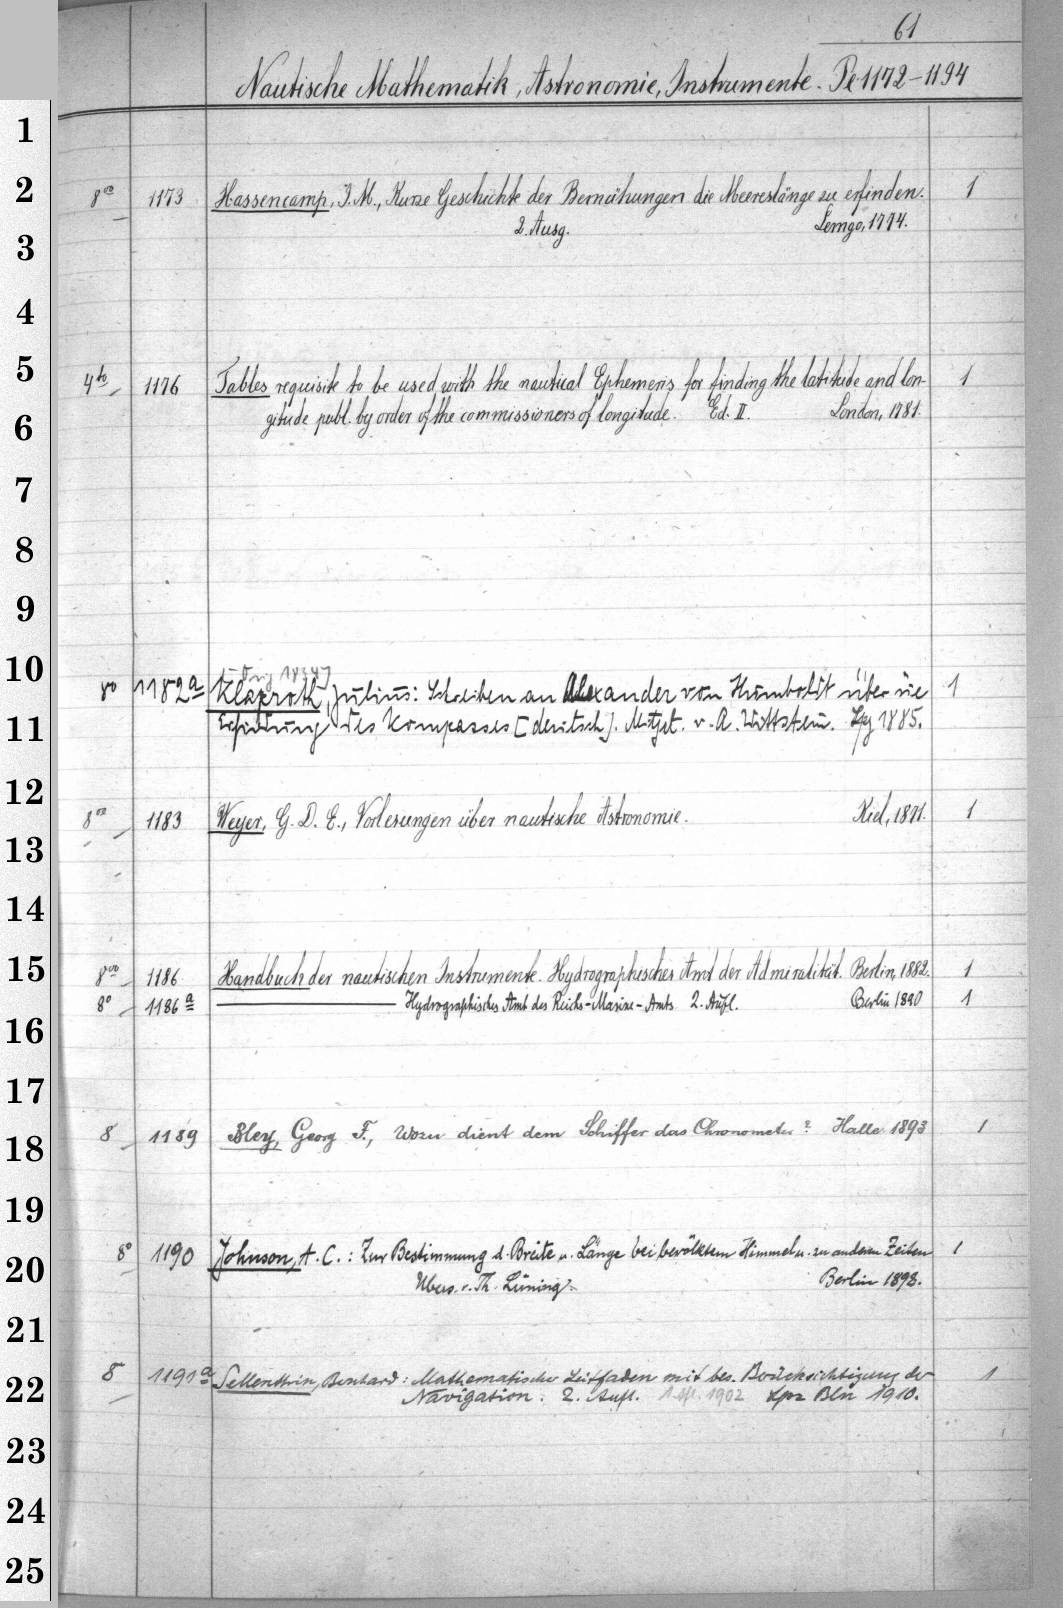 61
Nautische Mathematik, Astronomie, Instrumente. Pe 1172-1194
1
2
3
4
5
6
7
8
9
10
11
12
13
14
15
16
17
18
19
20
21
22
23
24
25
8vo 1173 Hassencamp, J. M., Kurze Geschichte der Bemühungen die Meereslänge zu erfinden. 1
2. Ausg. Lemgo, 1774.
4to 1176 Tables requisite to be used with the nautical Ephemeris for finding the latitude and lon-
gitude publ. by order of the commissioners of longitude. Ed. II. London, 1781. 1
[Orig 1834]
8o 1182a Klaproth, Julius: Schreiben an Alexander von Humboldt über die 1
Erfindung des Kompasses [deutsch]. Mitget. v. A. Wittstein. Lpz 1885.
8vo 1183 Weyer, G. D. E., Vorlesungen über nautische Astronomie. Kiel, 1871. 1
8vo 1186 Handbuch der nautischen Instrumente. Hydrographisches Amt der Admiralität. Berlin, 1882. 1
8o 1186a Hydrographisches Amt des Reichs-Marine-Amts 2. Aufl. Berlin 1890 1
8 1189 Bley, Georg F., Wozu dient dem Schiffer das Chronometer? Halle 1893 1
8o 1190 Johnson, A. C.: Zur Bestimmung d. Breite u. Länge bei bewölktem Himmel u. zu anderen Zeiten 1
Übers. v. Th. Lüning. Berlin 1893.
8 1191a Sellenthin, Bernhard: Mathematischer Leitfaden mit bes. Berücksichtigung der 1
Navigation. 2. Aufl. 1902 Lpz Bln 1910.